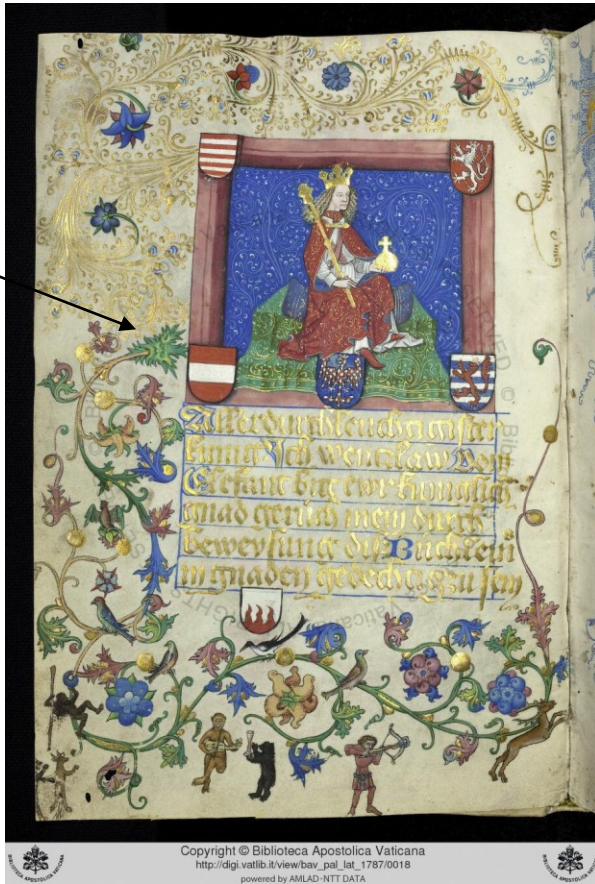 Allerdurchleuchtigister
kunig Ich wentzlaw Vom
Elefant bit ewr kuniglich
gnad geruch mein durch
beweysung diß Buchlein
in gnaden gedechtig zu sein
Copyright © Biblioteca Apostolica Vaticana
http://digi.vatlib.it/view/bav_pal_lat_1787/0018
powered by AMLAD-NTT DATA